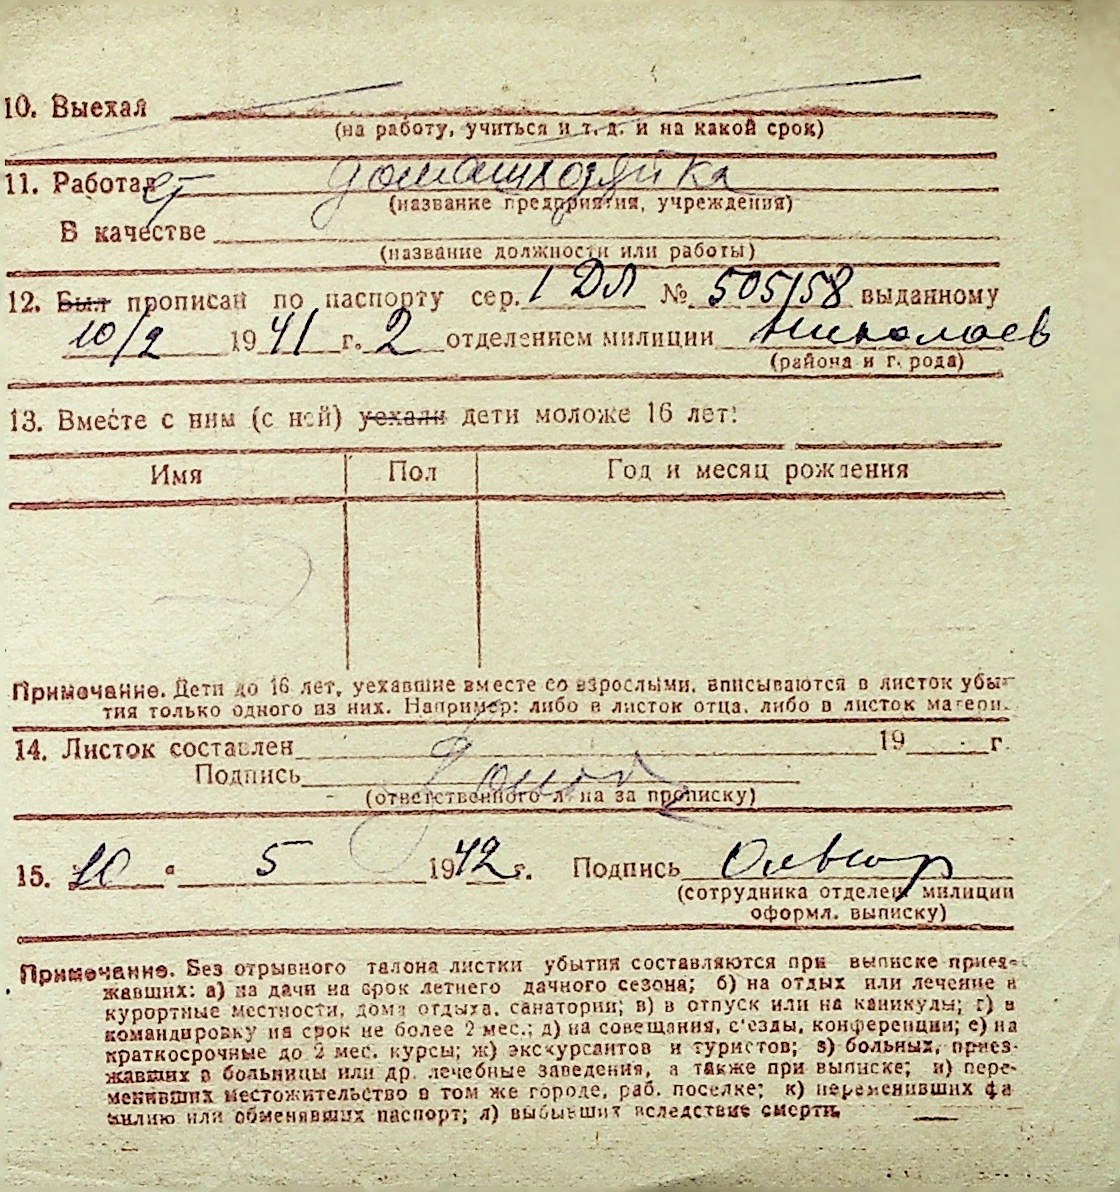 10. Выехал
(на работу, учиться и т. д. и на какой срок)
11. Работает домашхозяйка
(название предприятия, учреждения)
В качестве
(название должности или работы)
12. Был прописан по паспорту сер. I ДЛ № 505158 выданному
10/2 1941 г. 2 отделением милиции Николаев
(района и города)
13. Вместе с ним (с ней) уехали дети моложе 16 лет:
Имя Пол Год и месяц рождения
Примечание. Дети до 16 лет, уехавшие вместе со взрослыми, вписываются в листок убы-
тия только одного из них. Например: либо в листок отца, либо в листок матери.
14. Листок составлен 19 г.
Подпись
(ответственного лица за прописку)
15. 10 " 5 1942 г. Подпись
(сотрудника отделен. милиции
оформл. выписку)
Примечание. Без отрывного талона листки убытия составляются при выписке приез-
жавших: а) на дачи на срок летнего дачного сезона; б) на отдых или лечение в
курортные местности, дома отдыха, санатории; в) в отпуск или на каникулы; г) в
командировку на срок не более 2 мес.; д) на совещания, с'езды, конференции; е) на
краткосрочные до 2 мес. курсы; ж) экскурсантов и туристов; з) больных, приез-
жавших в больницы или др. лечебные заведения, а также при выписке; и) пере-
менивших местожительство в том же городе, раб. поселке; к) переменивших фа
милию или обменявших паспорт; л) выбывших вследствие смерти.